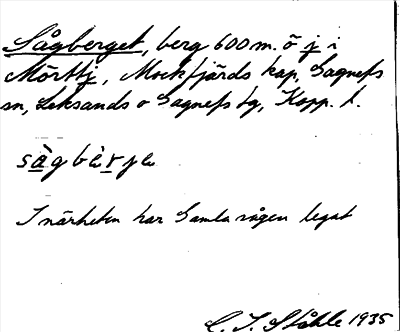 Sågberget, berg 600 m. ö j i
Mörttj, Mockfjärds kap, Gagnefs
sn, Leksands o Gagnefs tg, Kopp. l.
sàgbær̀jə
I närheten har Gamla sågen legat
C. I. Ståhle 1935